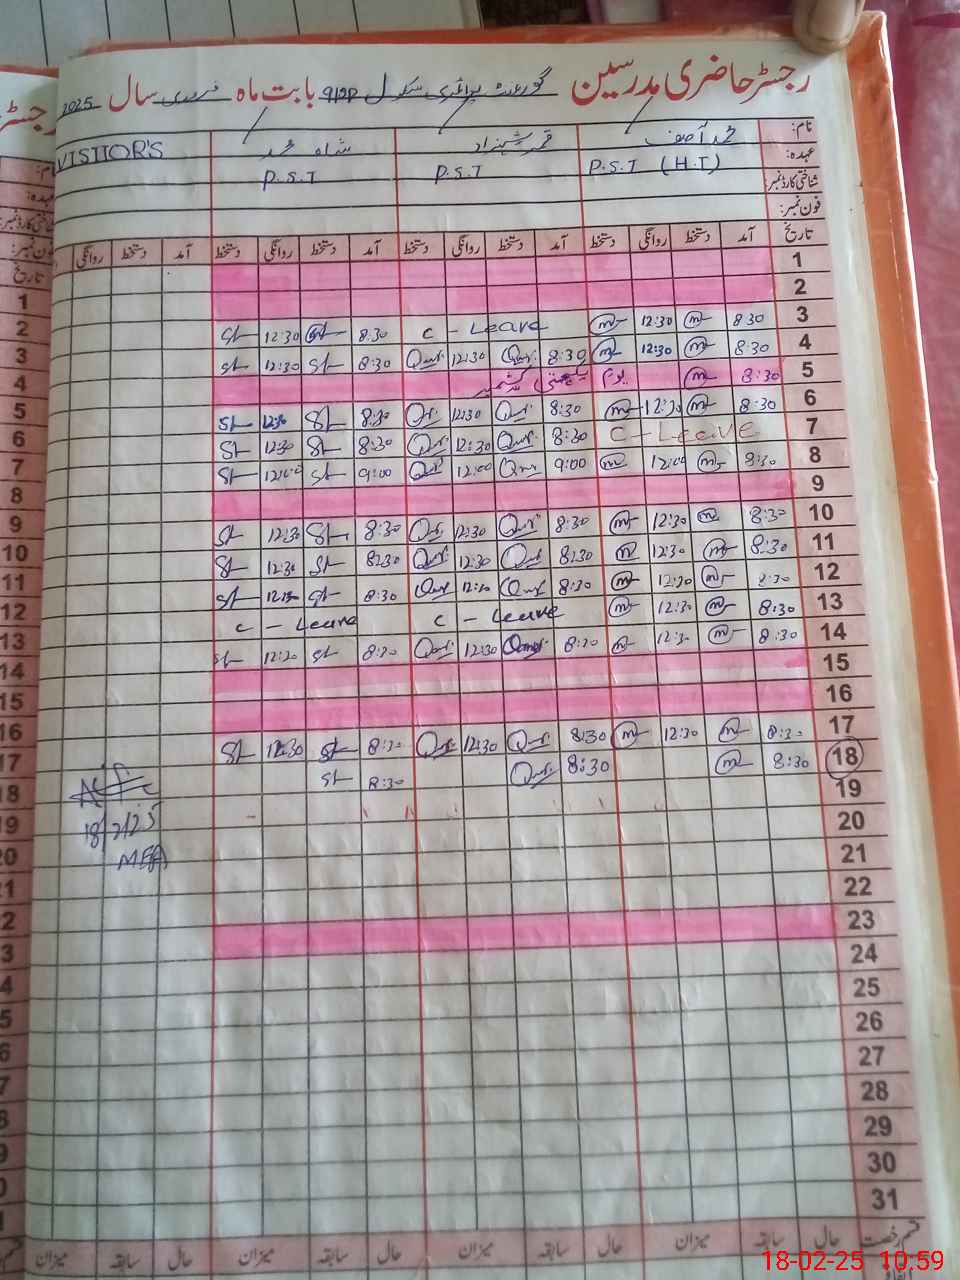 رجسٹر حاضری مدرسین گورنمنٹ پرائمری سکول 9/2P بابت ماہ فروری سال 2025
نام: محمد آصف قمر شہزاد شاہ محمد VISITOR'S
عہدہ: P.S.T (H.T) P.S.T P.S.T
شناختی کارڈ نمبر:
فون نمبر:
تاریخ آمد دستخط روانگی دستخط آمد دستخط روانگی دستخط آمد دستخط روانگی دستخط آمد دستخط روانگی
1
2
3 8:30 12:30 C - Leave 8:30 12:30
4 8:30 12:30 8:30 12:30 8:30 12:30
5 8:30 یوم یکجہتی کشمیر
6 8:30 12:30 8:30 12:30 8:30 12:30
7 C - Leave 8:30 12:30 8:30 12:30
8 8:30 12:00 9:00 12:00 9:00 12:00
9
10 8:30 12:30 8:30 12:30 8:30 12:30
11 8:30 12:30 8:30 12:30 8:30 12:30
12 8:30 12:30 8:30 12:30 8:30 12:30
13 8:30 12:30 C - Leave C - Leave
14 8:30 12:30 8:30 12:30 8:30 12:30
15
16
17 8:30 12:30 8:30 12:30 8:30 12:30
18 8:30 8:30 8:30
19
20 18/2/25
21 MEA
22
23
24
25
26
27
28
29
30
31
قسم رخصت حال سابقہ میزان حال سابقہ میزان حال سابقہ میزان حال سابقہ میزان
18-02-25 10:59